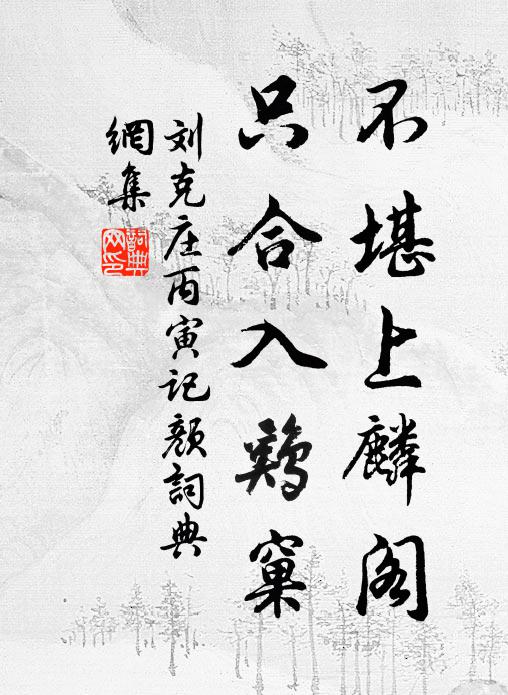 不堪上麟阁
只合入鷄窠
刘克庄丙寅记颜詞典
網集
詞典网印